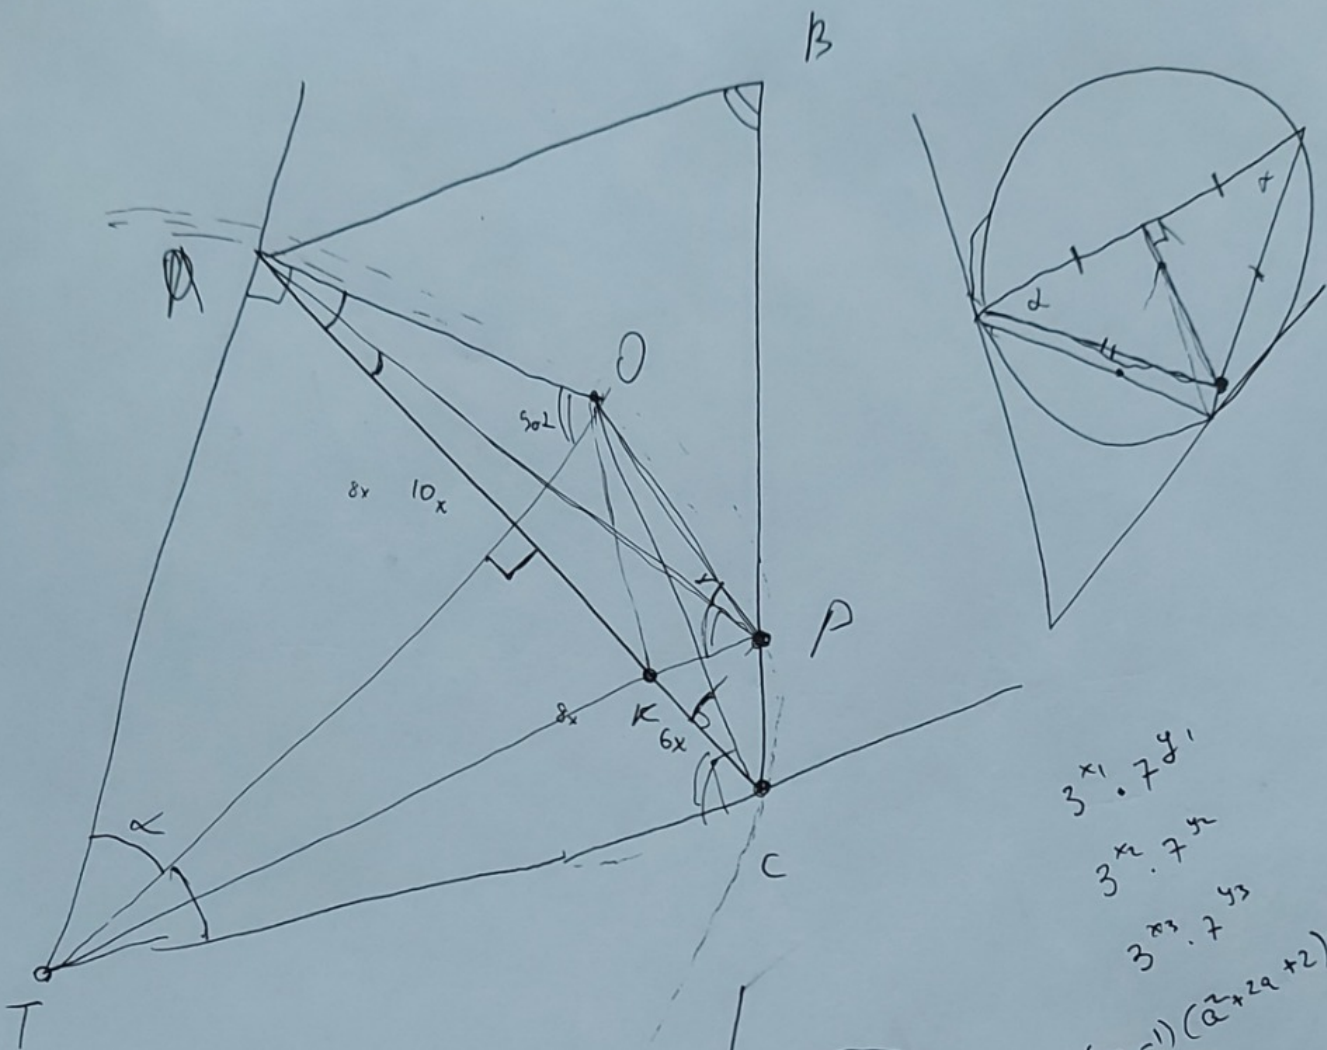 B
A
O
α
8x 10x
P
8x
K
6x
α
C
T
3^x1 · 7^y1
3^x2 · 7^y2
3^x3 · 7^y3
(a²+2a+2)